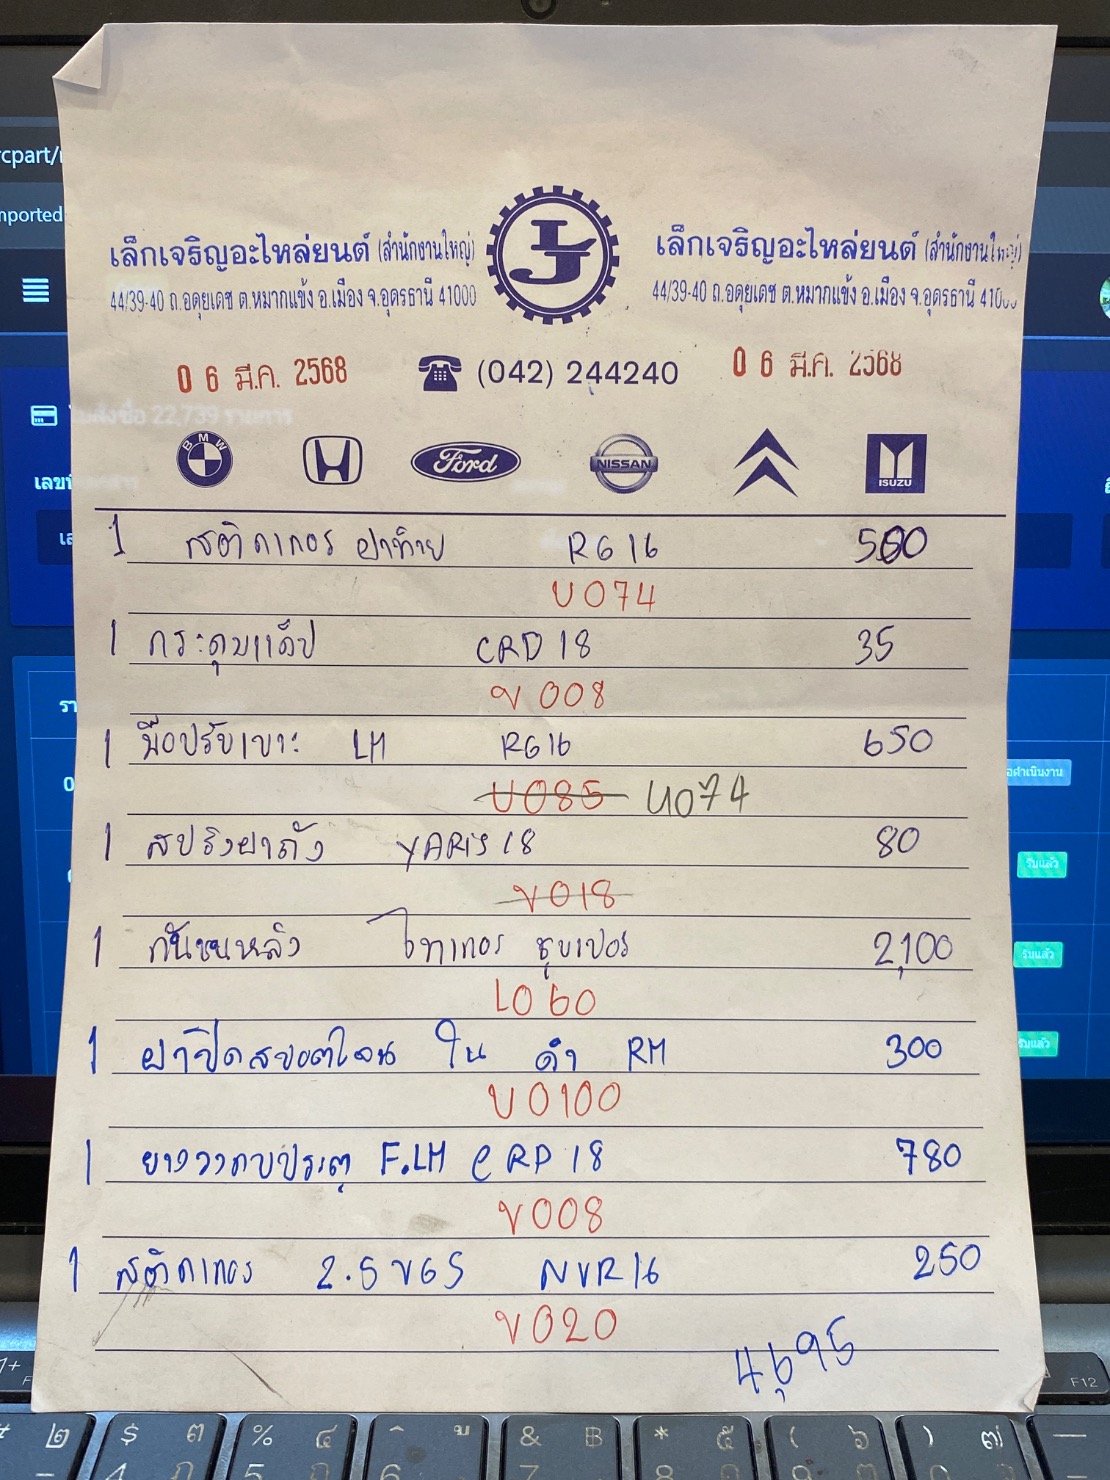 เล็กเจริญอะไหล่ยนต์ (สำนักงานใหญ่)
44/39-40 ถ.อดุยเดช ต.หมากแข้ง อ.เมือง จ.อุดรธานี 41000
LJ
เล็กเจริญอะไหล่ยนต์ (สำนักงานใหญ่)
44/39-40 ถ.อดุยเดช ต.หมากแข้ง อ.เมือง จ.อุดรธานี 41000
0 6 มี.ค. 2568
(042) 244240
0 6 มี.ค. 2568
BMW
Ford
NISSAN
ISUZU
1 สติกเกอร์ ฝาท้าย RG16 500
U074
1 กระดุมแด็ป CRD18 35
V008
1 มือปรับเบาะ LH RG16 650
U085 U074
1 สปริงฝาถัง YARIS18 80
V018
1 กันชนหลัง ไทเกอร์ ซูเปอร์ 2,100
L060
1 ฝาปิดสปอตไลน ใน ดำ RH 300
U0100
1 ยางวงกบประตู F.LH CRD18 780
V008
1 สติกเกอร์ 2.5 VGS NVR16 250
V020
4,695
rcpart/
mported
ใบสั่งซื้อ 22,739 รายการ
รับแล้ว
รับแล้ว
รับแล้ว
F12